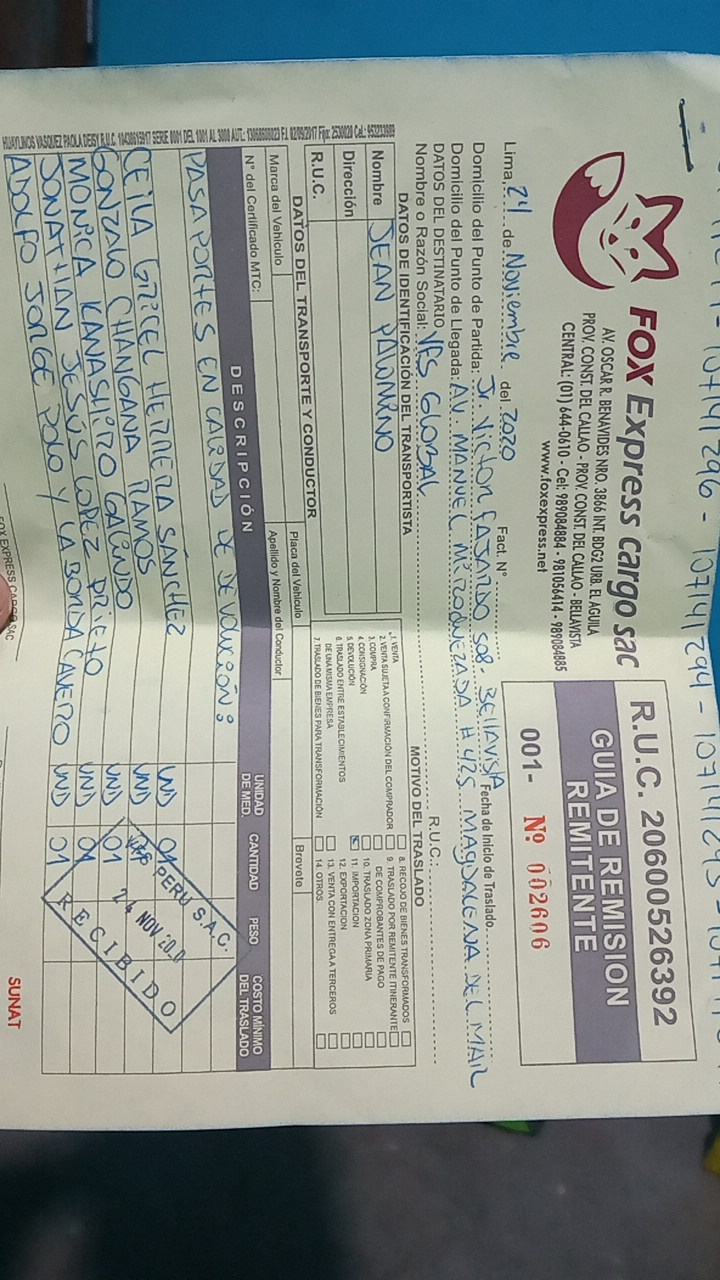 107141296 - 107141294 - 107141295 - 
FOX Express cargo sac
AV. OSCAR R. BENAVIDES NRO. 3866 INT. BDG2 URB. EL AGUILA
PROV. CONST. DEL CALLAO - PROV. CONST. DEL CALLAO - BELLAVISTA
CENTRAL: (01) 644-0610 - Cel: 989084884 - 981056414 - 989084885
www.foxexpress.net
R.U.C. 20600526392
GUIA DE REMISION
REMITENTE
001- Nº 002606
Lima, 24 de Noviembre del 2020 Fact. Nº Fecha de Inicio de Traslado.
Domicilio del Punto de Partida: Jr. Victor FAJARDO 508. BELLAVISTA
Domicilio del Punto de Llegada: AV. MANUEL # 425 MAGDALENA DEL MAR
DATOS DEL DESTINATARIO
Nombre o Razón Social: VFS GLOBAL R.U.C.:
DATOS DE IDENTIFICACIÓN DEL TRANSPORTISTA
Nombre JEAN PALOMINO
Dirección
R.U.C.
MOTIVO DEL TRASLADO
1. VENTA
2. VENTA SUJETA A CONFIRMACIÓN DEL COMPRADOR
3. COMPRA
4. CONSIGNACIÓN
5. DEVOLUCIÓN
6. TRASLADO ENTRE ESTABLECIMIENTOS
DE UNA MISMA EMPRESA
7. TRASLADO DE BIENES PARA TRANSFORMACIÓN
8. RECOJO DE BIENES TRANSFORMADOS
9. TRASLADO POR REMITENTE ITINERANTE
DE COMPROBANTES DE PAGO
10. TRASLADO ZONA PRIMARIA
11. IMPORTACION
12. EXPORTACION
13. VENTA CON ENTREGA A TERCEROS
14. OTROS
DATOS DEL TRANSPORTE Y CONDUCTOR
Marca del Vehiculo Placa del Vehiculo Brevete
Nº del Certificado MTC: Apellido y Nombre del Conductor
DESCRIPCIÓN UNIDAD DE MED. CANTIDAD PESO COSTO MÍNIMO DEL TRASLADO
PASAPORTES EN CALIDAD DE DEVOLUCIÓN:
CEILA GRICEL HERRERA SÁNCHEZ UND 01
GONZALO CHANGANA RAMOS UND
MONICA KANASHIRO GALINDO UND 01
JONATHAN JESÚS LOPEZ PRIETO UND 01
ADOLFO JORGE POLO Y LA BORDA CAVERO UND 01
PERU S.A.C.
24 NOV 2020
RECIBIDO
HUAYLINOS VASQUEZ PAOLA DEISY R.U.C. 10430615917 SERIE 0001 DEL 1001 AL 3000 AUT.: 13068608023 F.I. 02/05/2017 Fijo: 2530020 Cel.: 953233989
FOX EXPRESS CARGO SAC
SUNAT